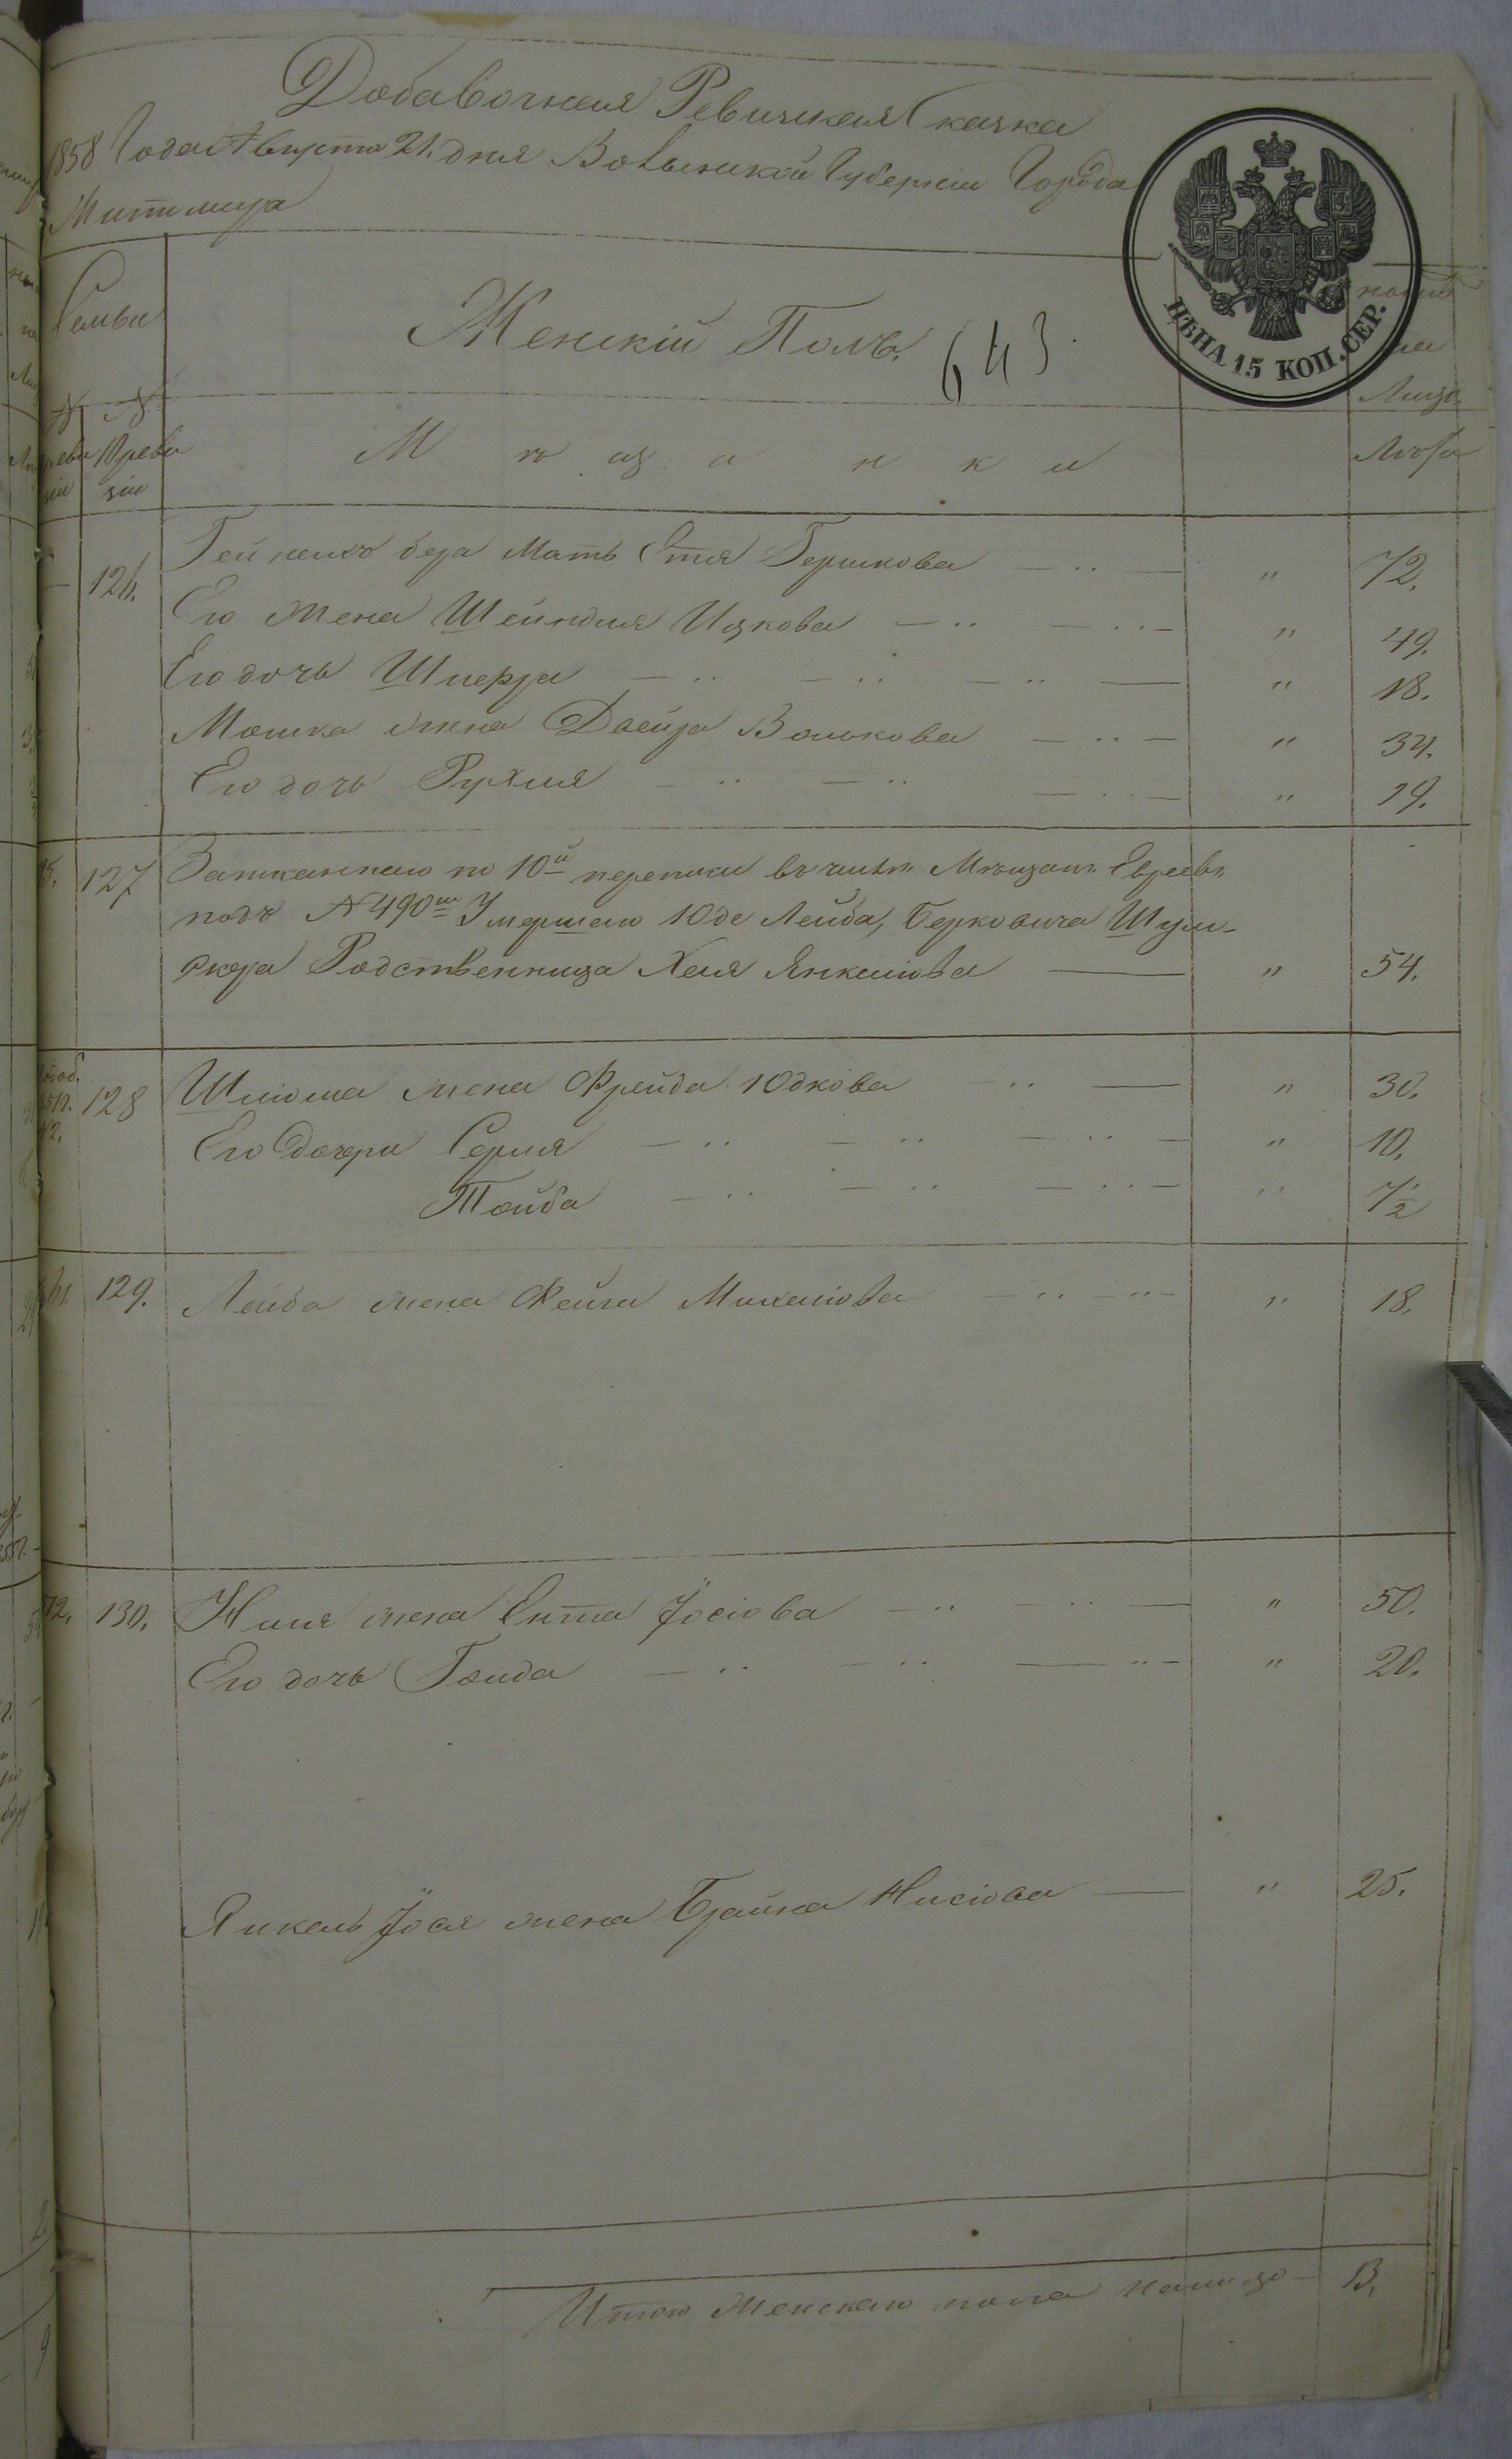 Добавочная Ревизкая Сказка
1858 Года Августа 21. дня Волынской Губерніи Города
Житомира
Семьи
Женскій Полъ.
643
ЦѢНА 15 КОП. СЕР.
на
Лицо
№ №
реви 10 реви
зіи зіи
М ѣ щ а н к и
Лѣта
126. Гейнехъ бера Мать Етя Гершкова — " 72.
Его Жена Шейндля Ицкова — " 49.
Его дочь Шпера — " 18.
Мошка жена Двейра Волькова — " 34.
Его дочь Рухля — " 19.
5. 127 Записаннаго по 10й переписи въ числѣ Мѣщанъ Евреевъ
подъ № 490мъ Умершаго Юде Лейба, Берковича
Родственница Хая Янкелiова — " 54.
128 Шліома жена Фрейда Юдкова — " 30.
2.
Его Дочери Серля — " 10.
Тойба — " 1/2
129. Лейба жена Фейга Михелiова — " 18.
12. 130. жена Ента Іосіова — " 50.
Его дочь Голда — " 20.
Янкель Іося жена Брайна Нисіова — " 25.
Итого Женскаго пола налицо — 13.